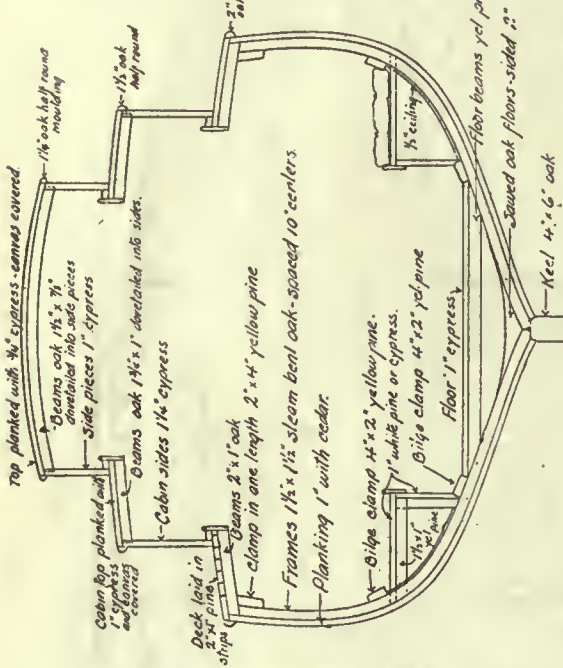 Top planked with 3/4" cypress - canvas covered.
1 1/4" oak half round
moulding
Beams oak 1 1/2" x 7/8"
dovetailed into side pieces
Side pieces 1" cypress
1 1/2" oak
half round
2"
Cabin top planked with
1" cypress
and canvas
covered
Beams oak 1 3/4" x 1" dovetailed into sides.
Cabin sides 1 1/4" cypress
Deck laid in
strips
Beams 2" x 1" oak
clamp in one length 2" x 4" yellow pine
Frames 1 1/2 x 1 1/2" steam bent oak - spaced 10" centers.
Planking 1" with cedar.
Bilge clamp 4" x 2" yellow pine.
1" white pine or cypress.
Bilge clamp 4" x 2" yel pine
1 1/2 x 1"
yel pine
Floor 1" cypress
1/2" ceiling
Floor beams yel
Sawed oak floors - sided
Keel 4" x 6" oak